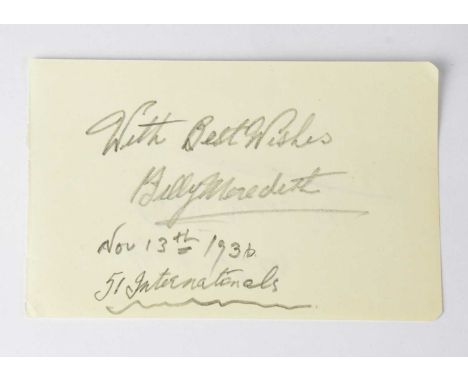 With Best Wishes
Billy Meredith
Nov 13th 1936
51 Internationals